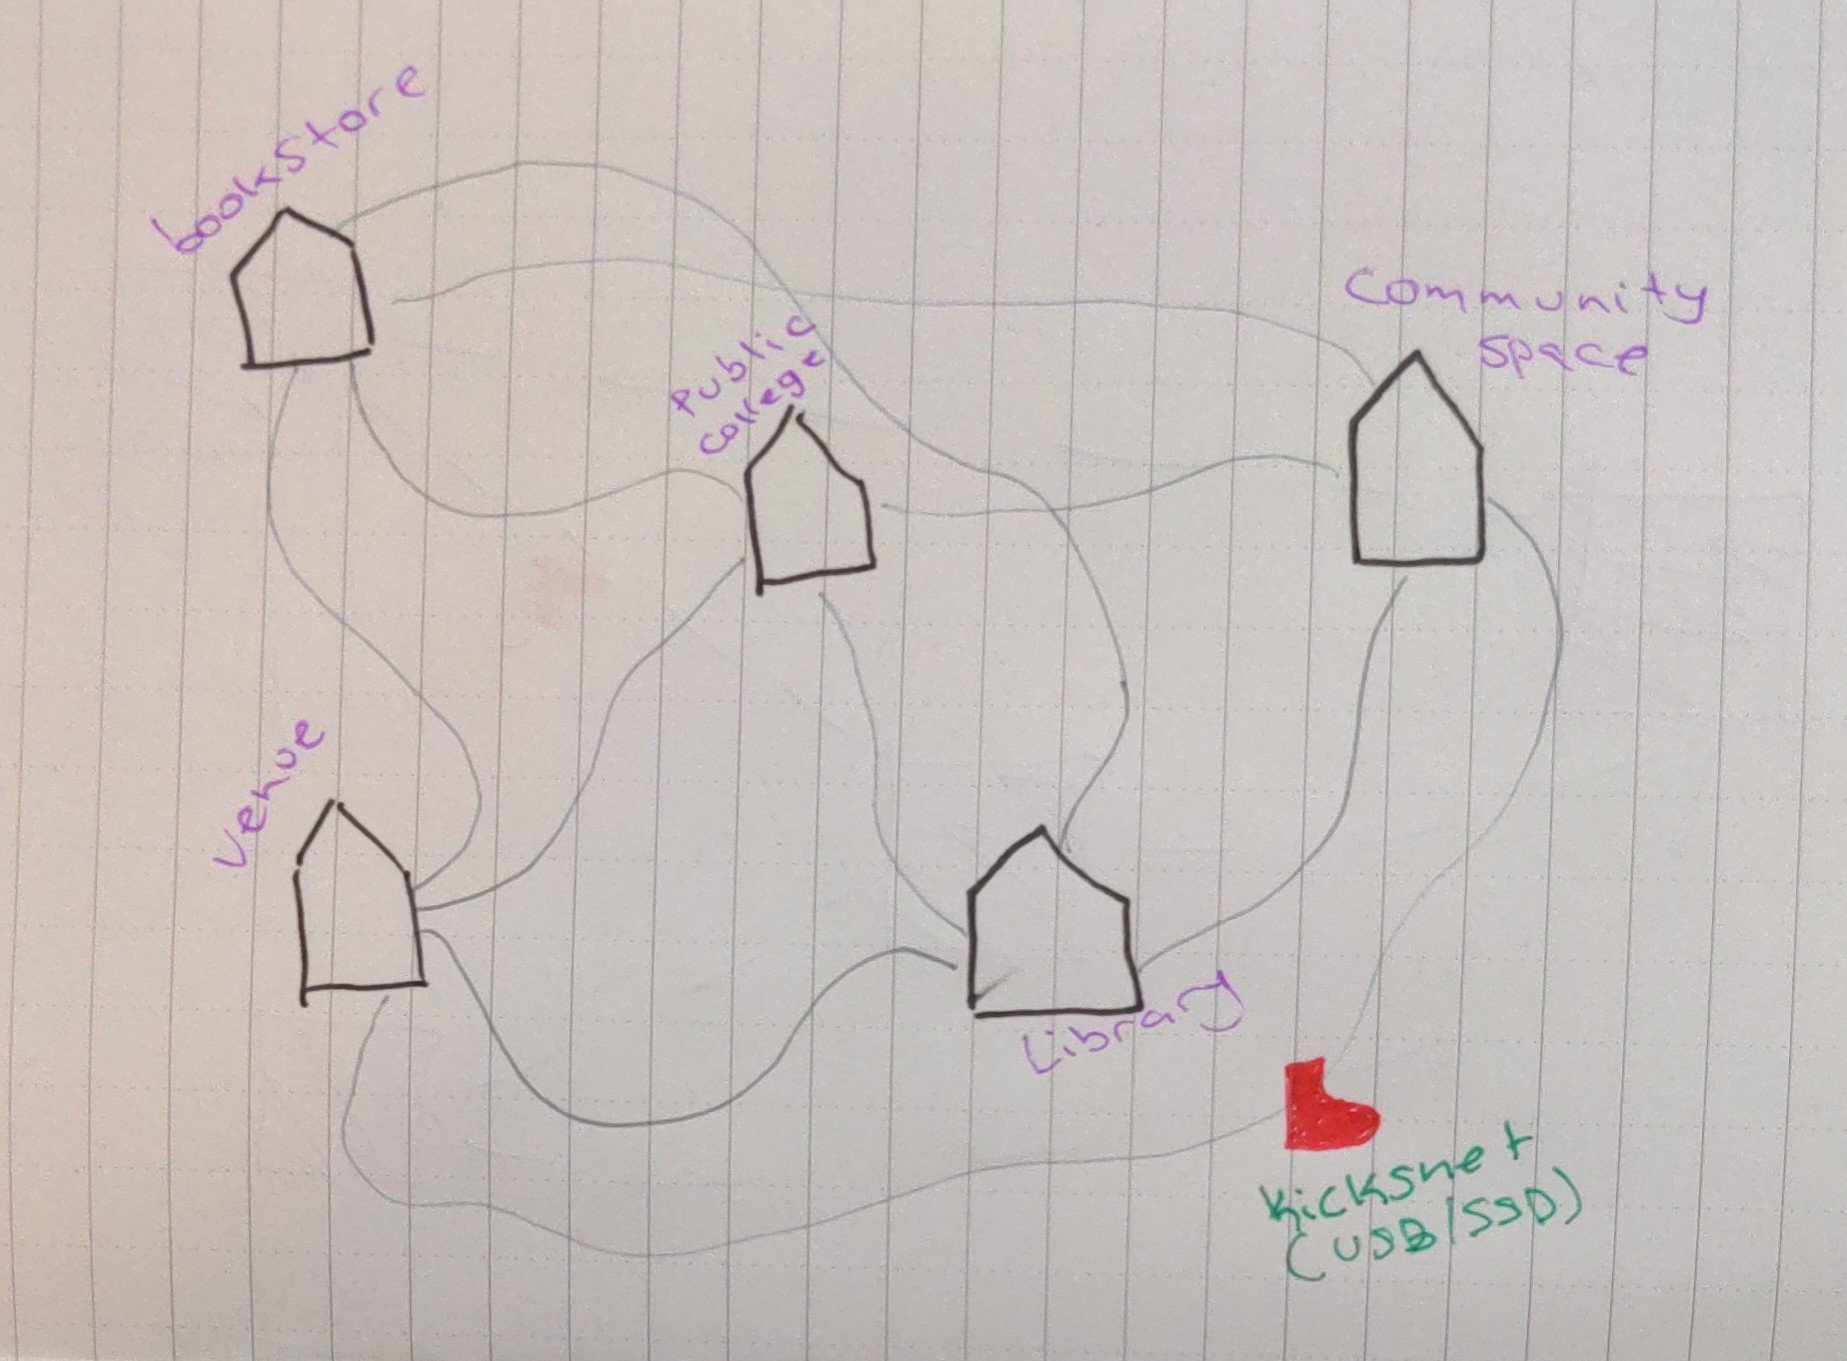 bookstore
Community
space
Public
College
Venue
Library
Kicksnet
(USB/SSD)